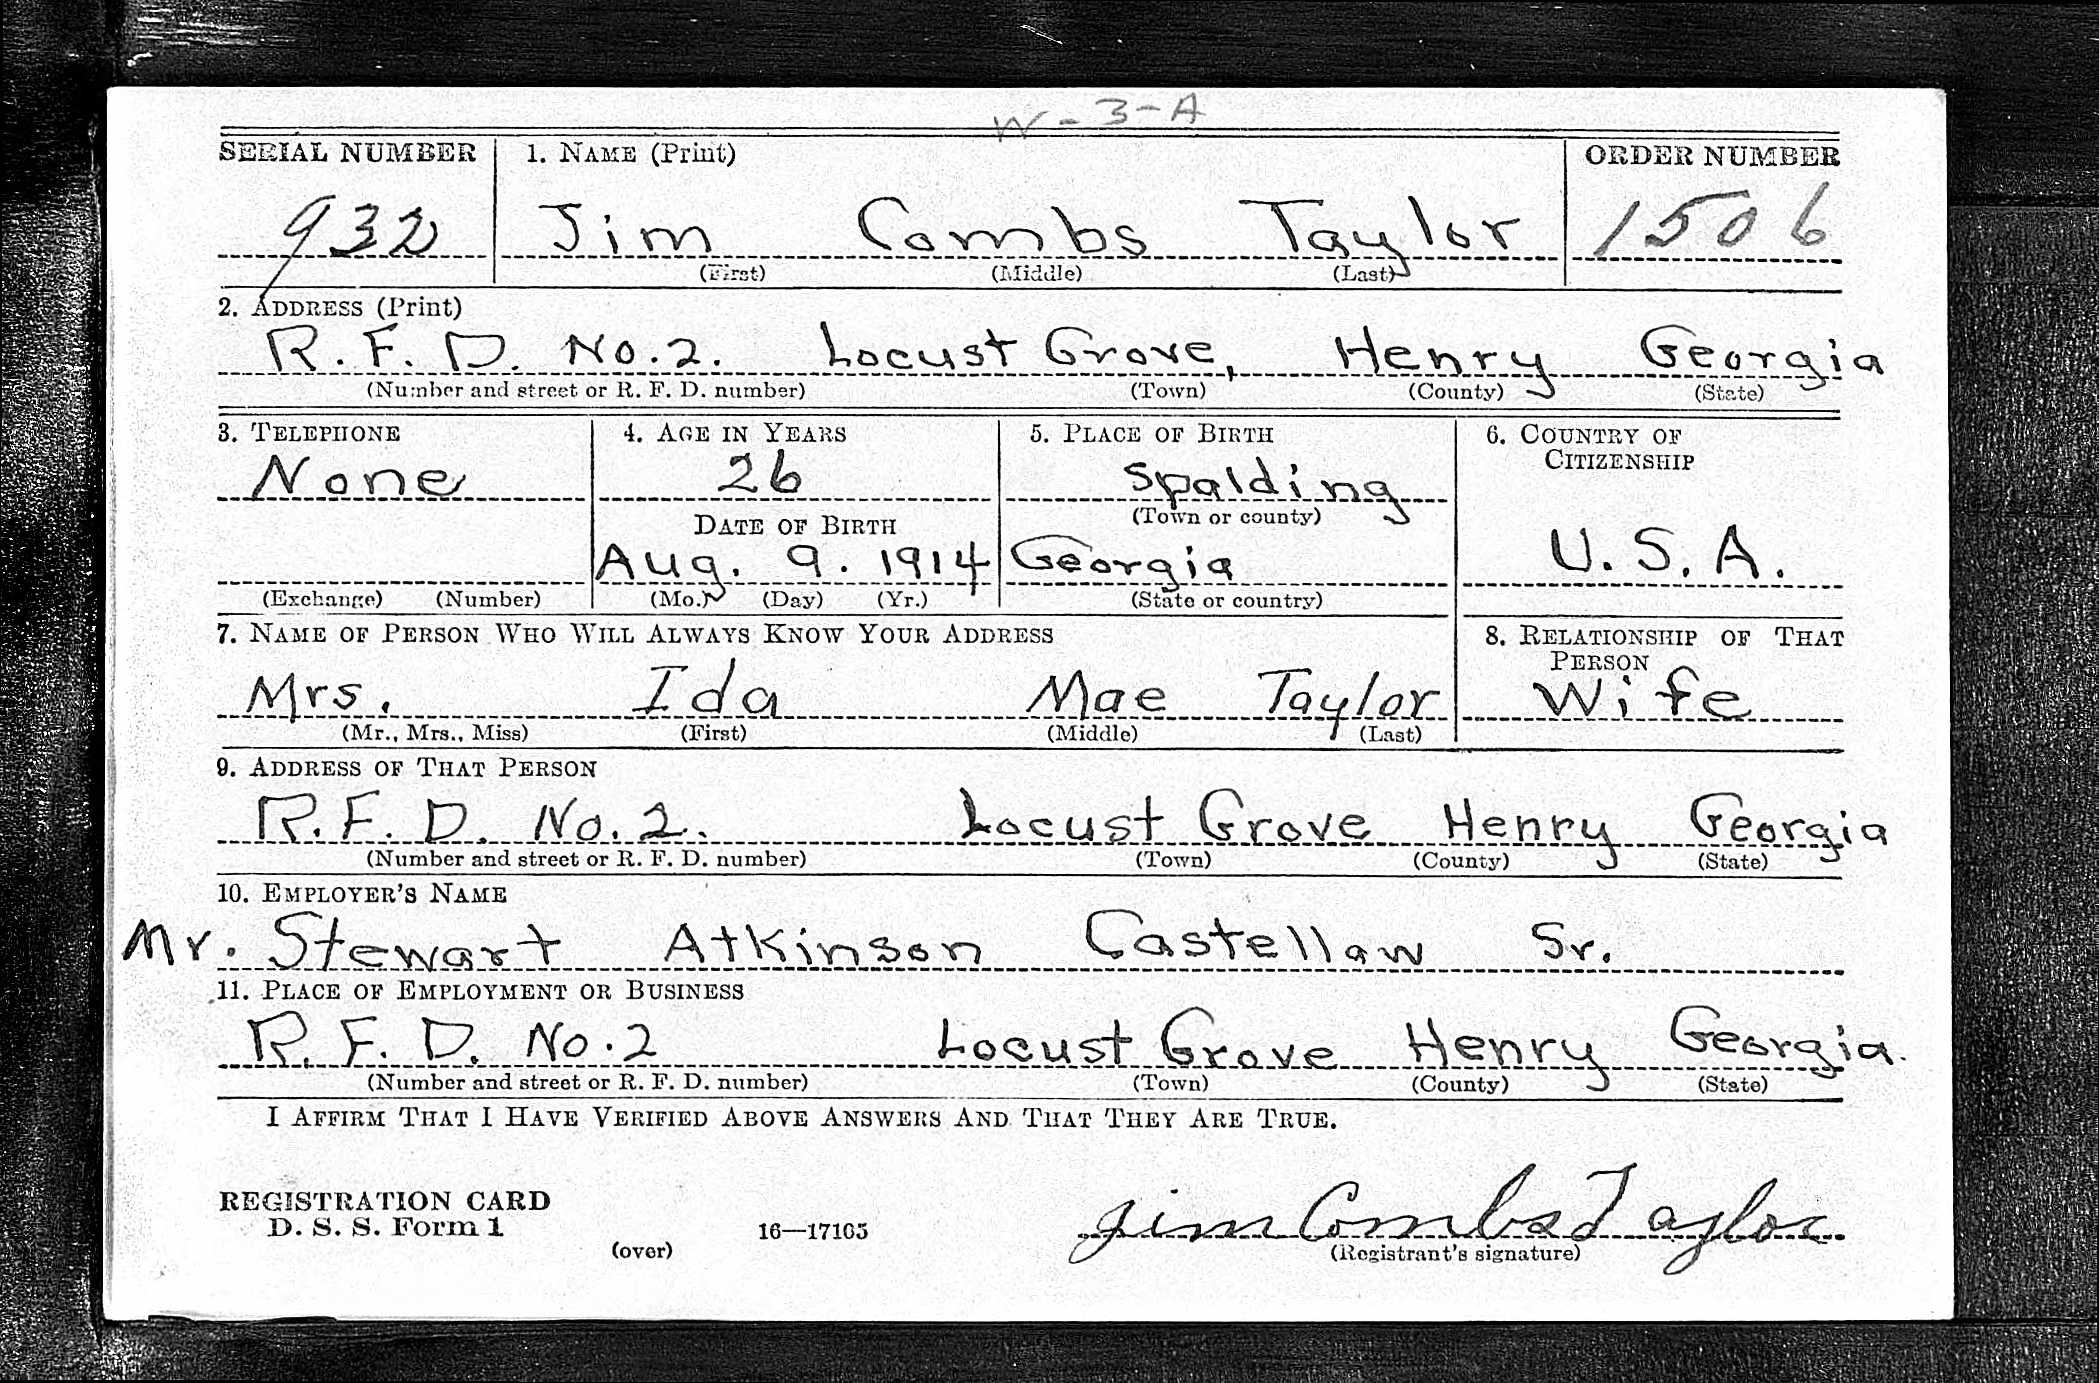 W-3-A
SERIAL NUMBER 1. NAME (Print) ORDER NUMBER
932 Jim Combs Taylor 1506
(First) (Middle) (Last)
2. ADDRESS (Print)
R.F.D. No.2. Locust Grove, Henry Georgia
(Number and street or R. F. D. number) (Town) (County) (State)
3. TELEPHONE 4. AGE IN YEARS 5. PLACE OF BIRTH 6. COUNTRY OF
CITIZENSHIP
None 26 Spalding
(Town or county)
DATE OF BIRTH
Aug. 9. 1914 Georgia U.S.A.
(Exchange) (Number) (Mo.) (Day) (Yr.) (State or country)
7. NAME OF PERSON WHO WILL ALWAYS KNOW YOUR ADDRESS 8. RELATIONSHIP OF THAT
PERSON
Mrs. Ida Mae Taylor Wife
(Mr., Mrs., Miss) (First) (Middle) (Last)
9. ADDRESS OF THAT PERSON
R.F.D. No.2. Locust Grove Henry Georgia
(Number and street or R. F. D. number) (Town) (County) (State)
10. EMPLOYER'S NAME
Mr. Stewart Atkinson Castellaw Sr.
11. PLACE OF EMPLOYMENT OR BUSINESS
R.F.D. No.2 Locust Grove Henry Georgia.
(Number and street or R. F. D. number) (Town) (County) (State)
I AFFIRM THAT I HAVE VERIFIED ABOVE ANSWERS AND THAT THEY ARE TRUE.
REGISTRATION CARD
D. S. S. Form 1 16—17105 Jim Combs Taylor
(over) (Registrant's signature)